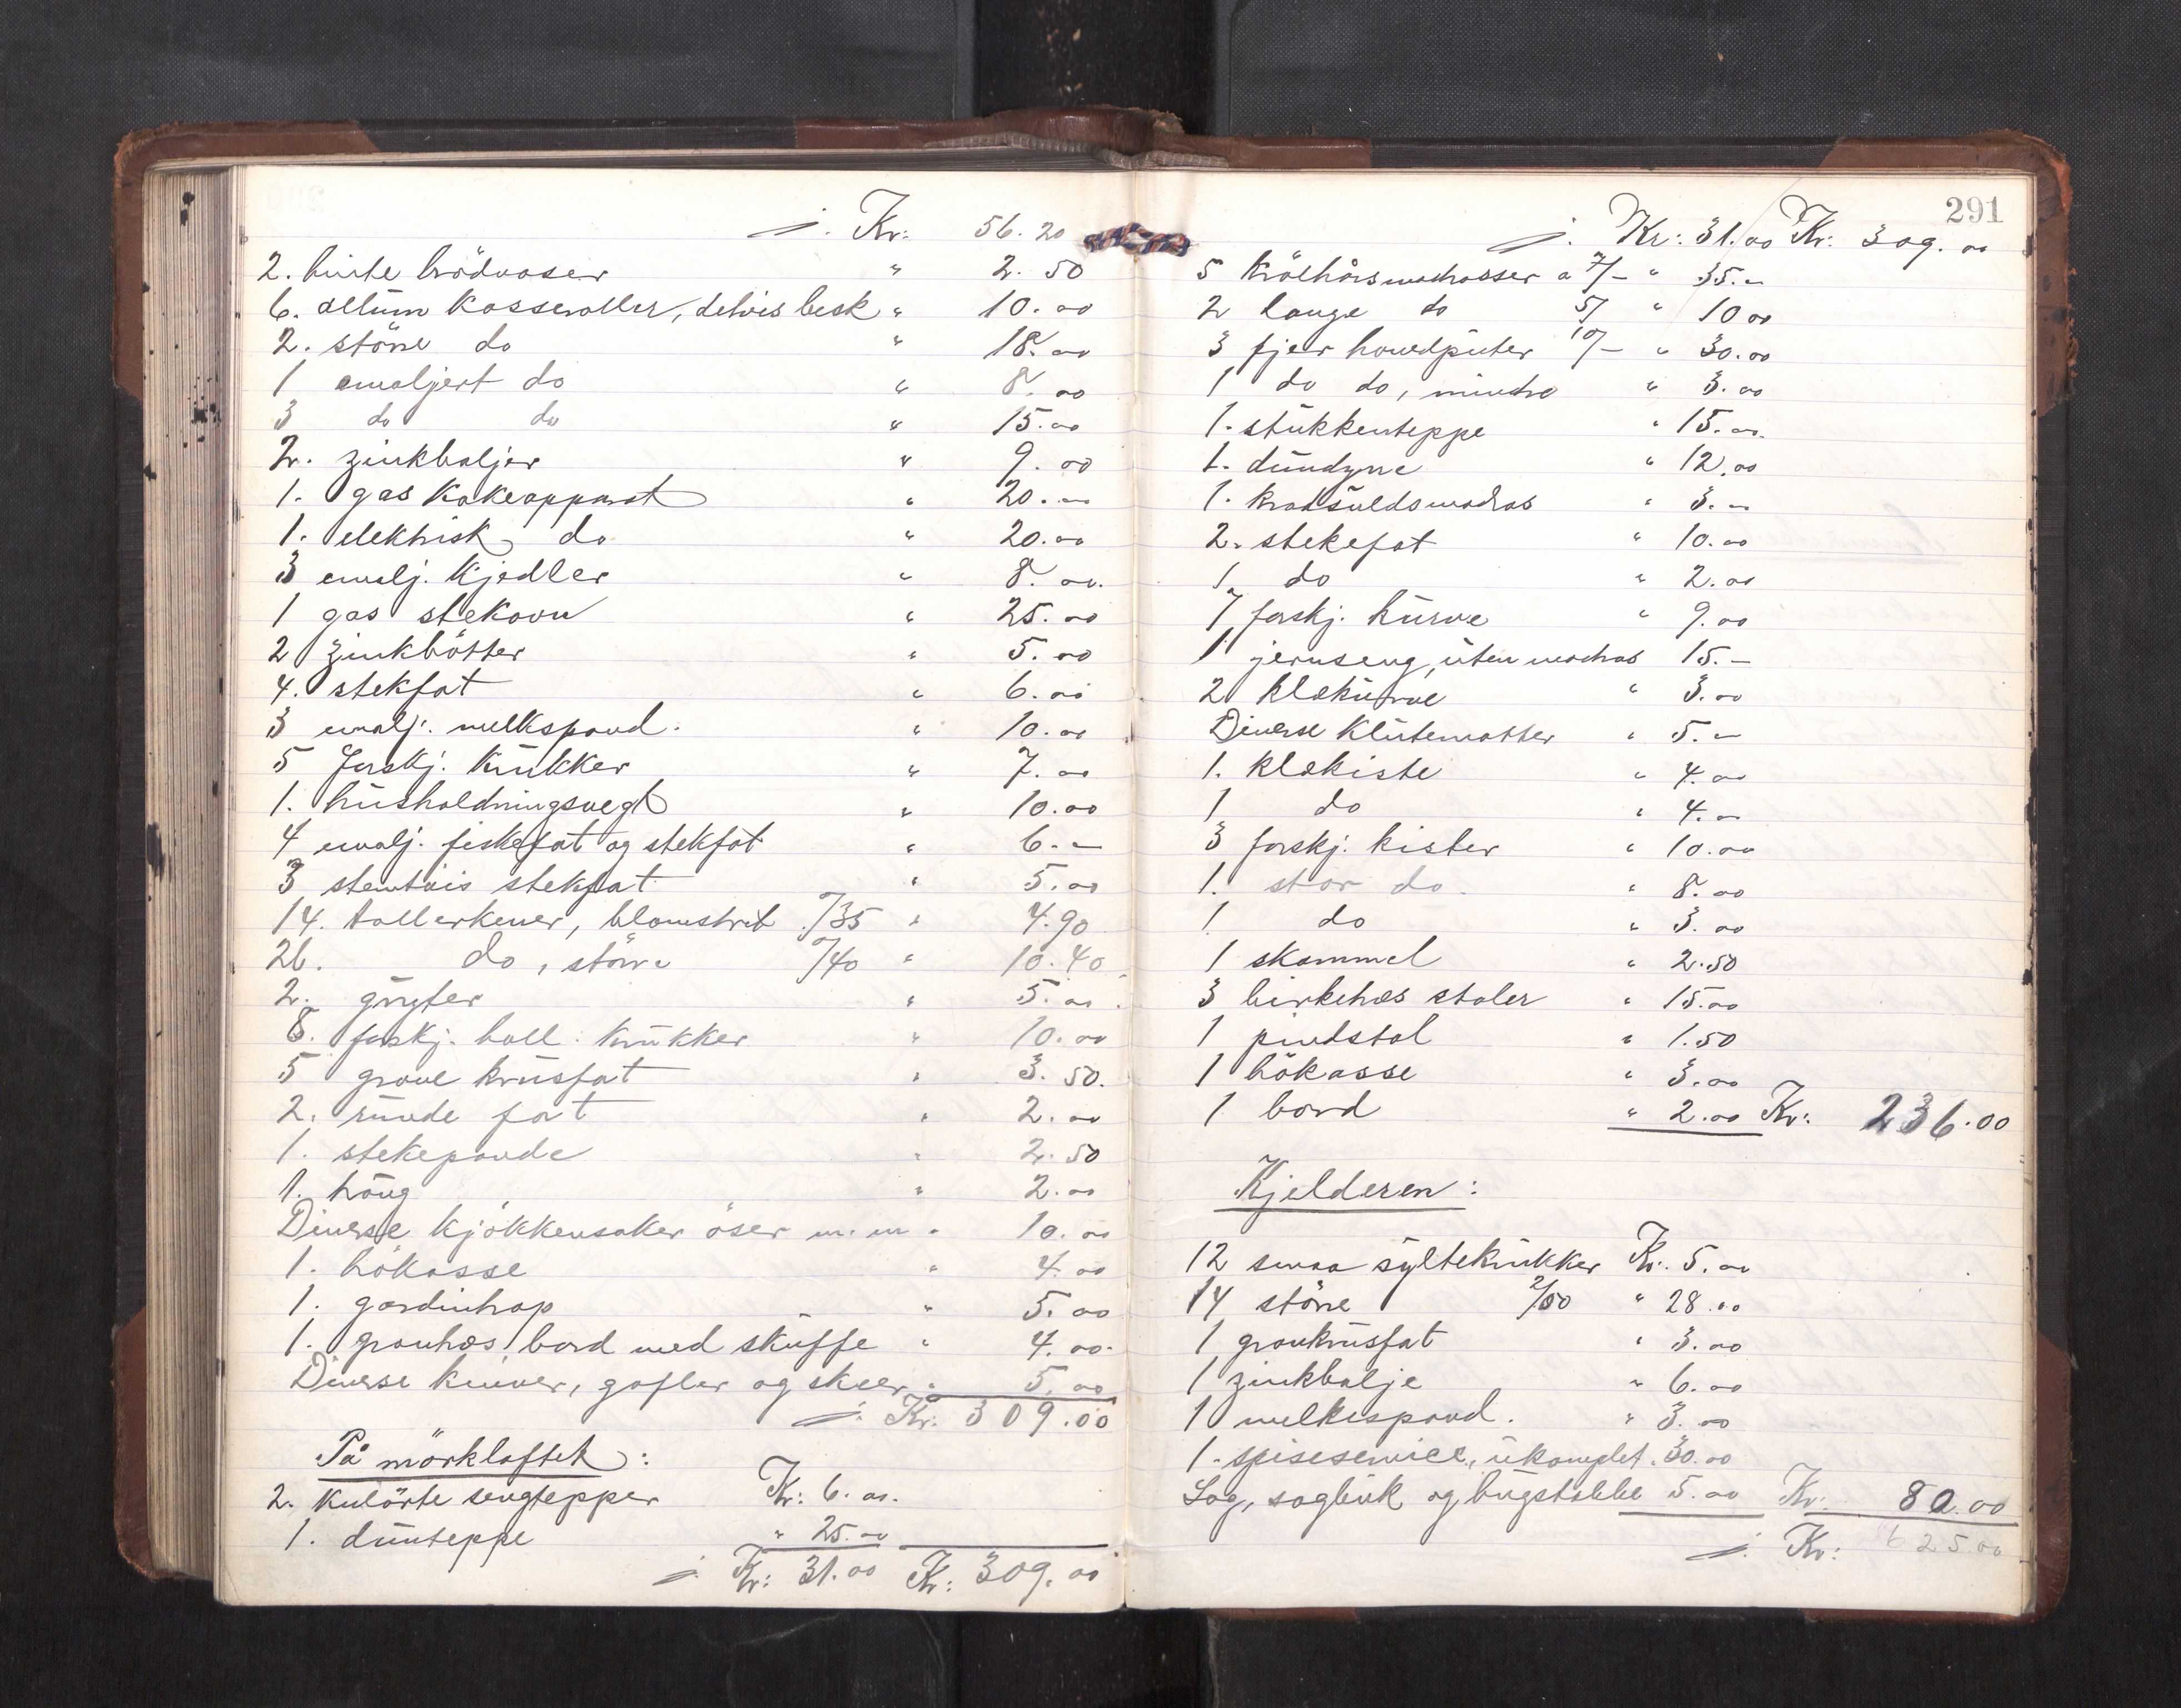 j. Kr: 56.20
2. hvite brödvaser " 2.50
6. allum Kasseroller, delvis besk " 10.00
2. större do " 18.00
1 emaljert do " 8.00
3 do do " 15.00
2. zinkbaljer " 9.00
1. gas Kokeapparat " 20.00
1. elektrisk do " 20.00
3 emalj. Kjedler " 8.00.
1 gas stekovn " 25.00
2 zinkbötter " 5.00
4. stekfat " 6.00
3 emalj. melkspand. " 10.00
5 forskj. Krukker " 7.00
1. husholdningsvegt " 10.00
4 emalj. fiskefat og stekfat " 6.-
3 stentöis stekfat " 5.00
14. tallerkener, blomstret %35 " 4.90
26. do, större %40 " 10.40
2. gryter " 5.00
8. forskj. ball. krukker " 10.00
5 grove krusfat " 3.50.
2. runde fat " 2.00
1. stekepande " 2.50
1. " 2.00
Diverse kjökkensaker öser m.m. " 10.00
1. hökasse " 4.00
1. gardintrap " 5.00
1. granhos bord med skuffe " 4.00.
Diverse kniver, gafler og skeer " 5.00
j. Kr: 309.00
På mörkloftet:
2. kulörte sengtepper Kr: 6.00.
1. dunteppe " 25.00
j. Kr: 31.00 Kr: 309.00
291
j. Kr: 31.00 Kr: 309.00
5 Krölhårsmadrasser a 7/- " 35.-
2 lange do 5/ " 10 00
3 fjer hovedputer 10/- " 30.00
1 do do, mindre " 3.00
1. stukkenteppe " 15.00.
1. dundyne " 12.00
1. madras " 3.-
2. stekefat " 10.00
1. do " 2.00
7 forskj. kurve " 9.00
1 jernseng, uten madras 15.-
2 klækurve " 3.00
Diverse Klutematter " 5.-
1. klækiste " 4.00
1 do " 4.-
3 forskj. kister " 10.00
1. stor do. " 8.00
1 do " 3.00
1 skammel " 2.50
3 birkehos stoler " 15.00
1 pindstol " 1.50
1 hökasse " 3.00
1 bord " 2.00 Kr: 236.00
Kjelderen:
12 smaa syltekrukker Kr. 5.00
14 större 2/00 " 28.00
1 graukrusfat " 3.00
1 zinkbalje " 6.00
1 melkespand. " 3.00
1. spiseservice, ukomplet. 30.00
Sag, sagbuk og hugstabbe 5.00 Kr: 80.00
j. Kr: 625.00